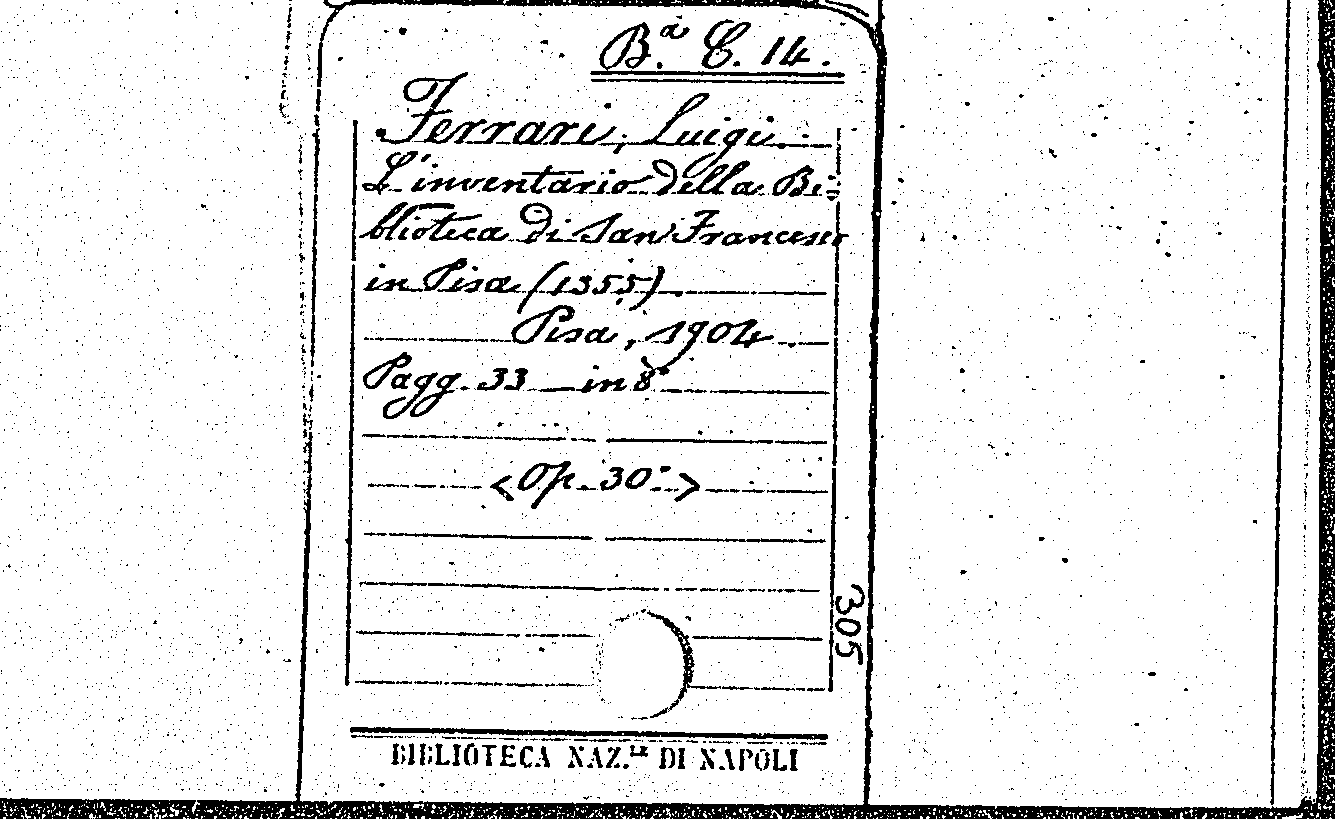 Bª. C. 14.
Ferrari, Luigi.
L'inventario della Bi-
blioteca di San Francesco
in Pisa (1355).
Pisa, 1904.
Pagg. 33 in 8°
<Op. 30.>
305
BIBLIOTECA NAZ.LE DI NAPOLI